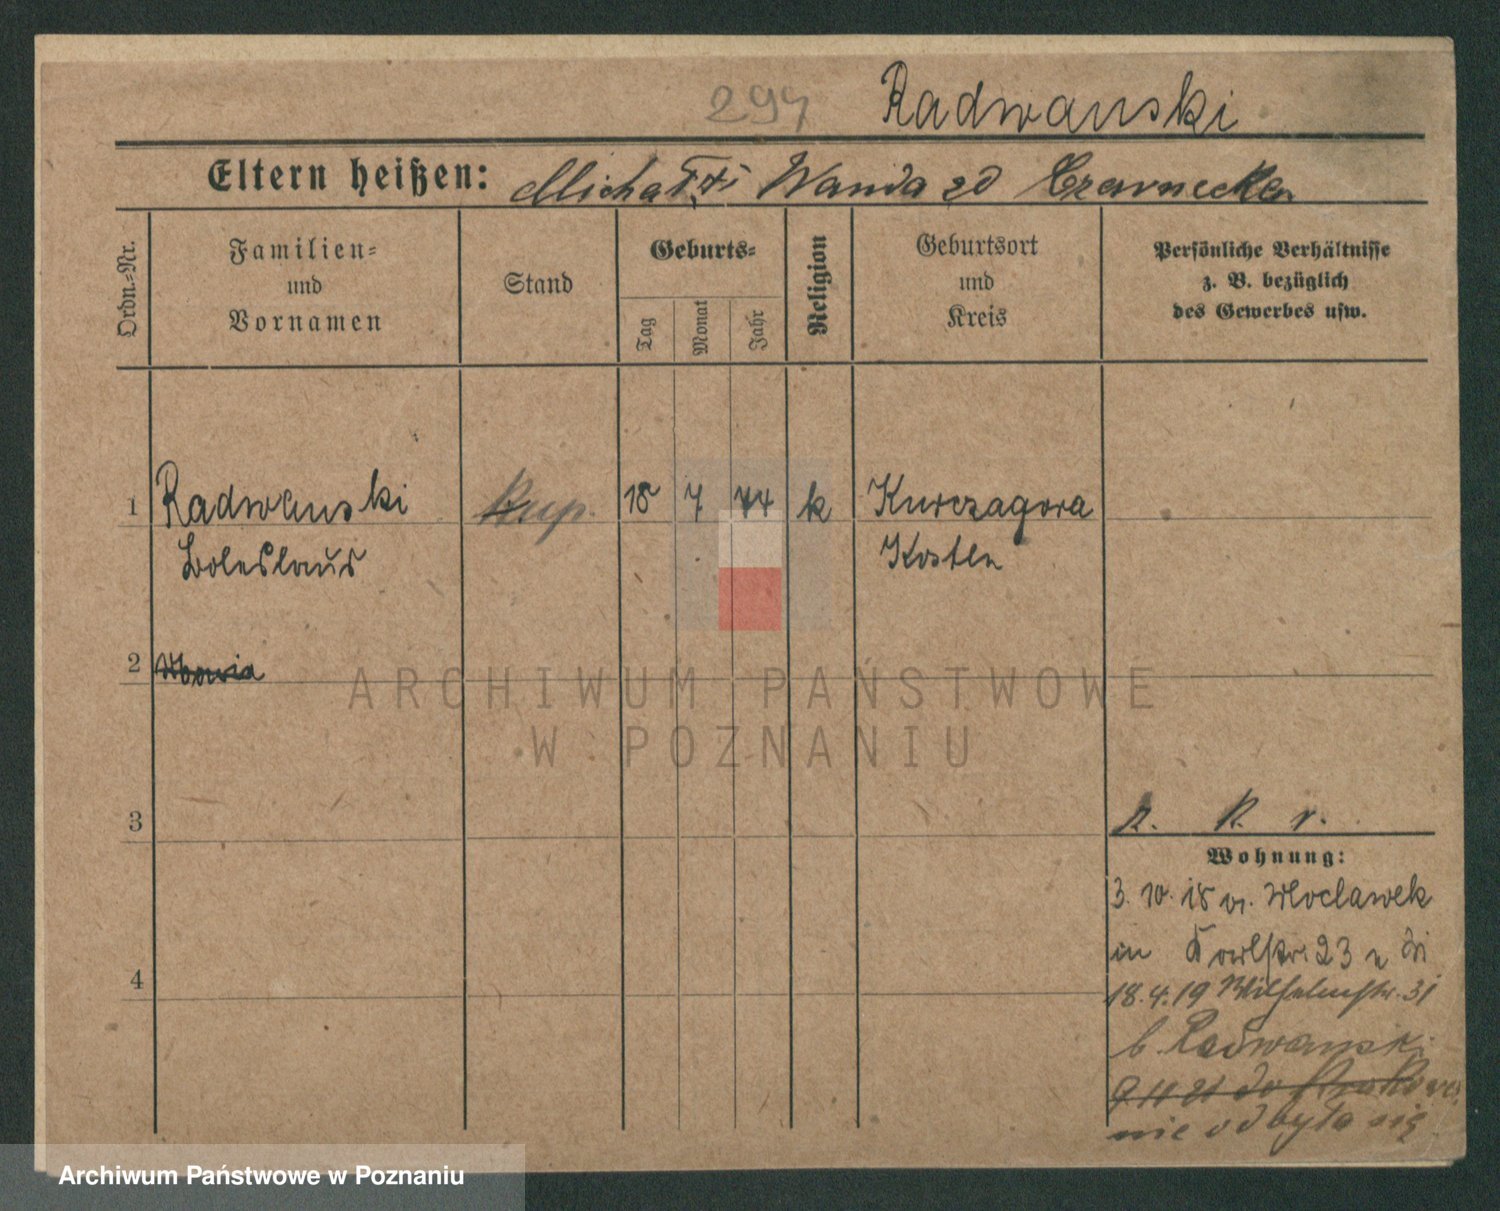 294 Radwanski
Eltern heißen: Michał Wanda zd Czarnecka
Ordn.=Nr.
Familien=
und
Vornamen
Stand
Geburts=
Tag
Monat
Jahr
Religion
Geburtsort
und
Kreis
Persönliche Verhältnisse
z. B. bezüglich
des Gewerbes usw.
1 Radwanski Kup. 18 7 74 k Kurczagora
Boleslaus Kosten
2
ARCHIWUM PAŃSTWOWE
W POZNANIU
3
R. K. r.
Wohnung:
3. 10. 18 v. Wloclawek
in 23
4
18.4.19 Wilhelmstr. 31
b. Radwanski
do
nie odbyła się
Archiwum Państwowe w Poznaniu